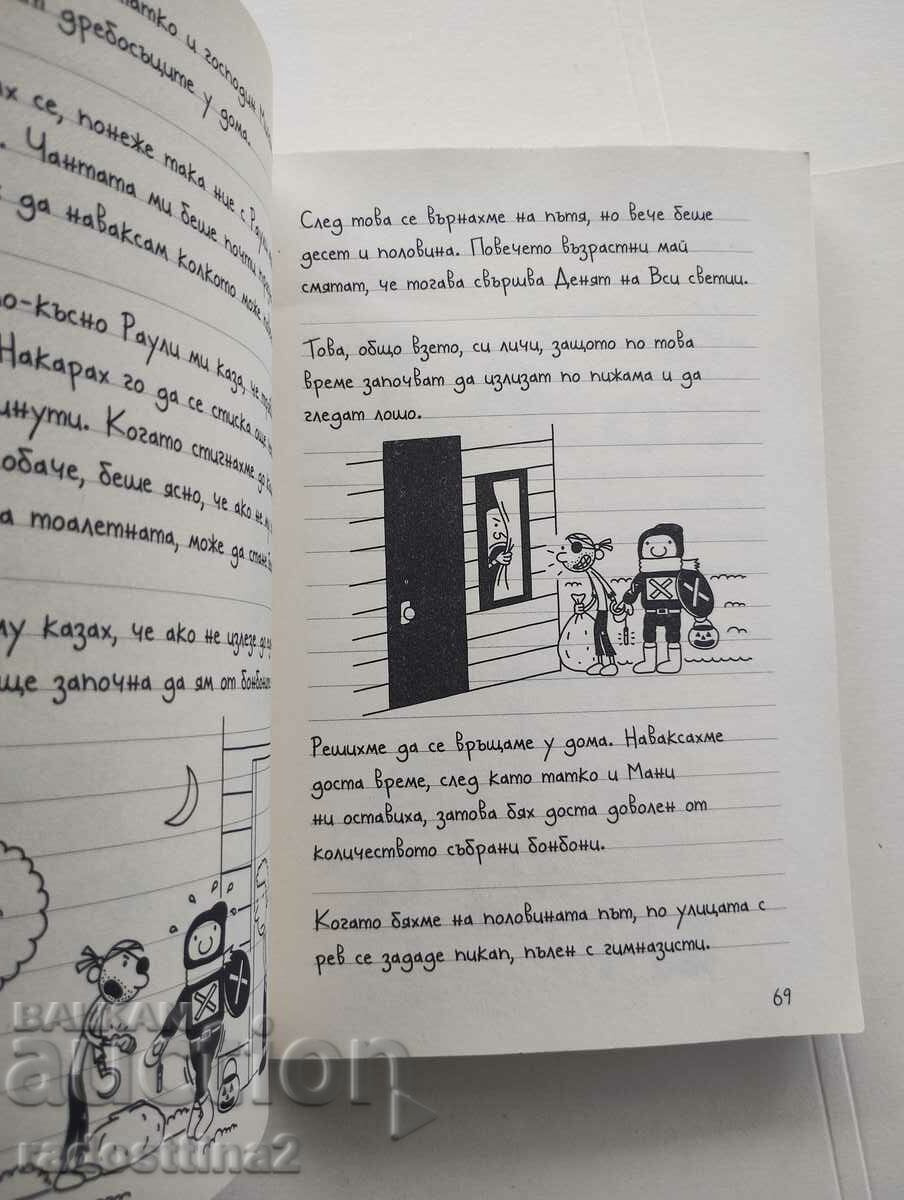 татко и господин
дребосъците у дома.
се, понеже така ние с
Чантата ми беше почти
да наваксам колкото може
по-късно Раули ми каза, че
Накарах го да се стиска още
минути. Когато стигнахме до
обаче, беше ясно, че ако не
тоалетната, може да
му казах, че ако не излезе
ще започна да ям от
След това се върнахме на пътя, но вече беше
десет и половина. Повечето възрастни май
смятат, че тогава свършва Денят на Вси светии.
Това, общо взето, си личи, защото по това
време започват да излизат по пижама и да
гледат лошо.
Решихме да се връщаме у дома. Наваксахме
доста време, след като татко и Мани
ни оставиха, затова бях доста доволен от
количеството събрани бонбони.
Когато бяхме на половината път, по улицата с
рев се зададе пикап, пълен с гимназисти.
69
БАЛКАН
auction
radosttina2